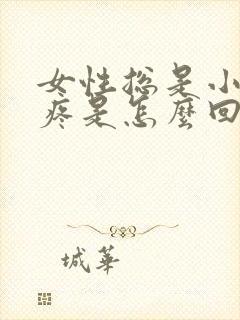 女性总是小
疼是怎麼回
城華